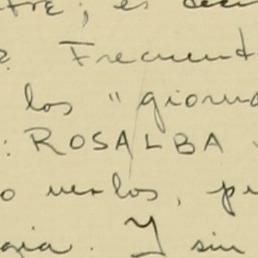 tre; es deci
? Frecuent
los "giorna
: ROSALBA
o verlos, p
gia. Y sin